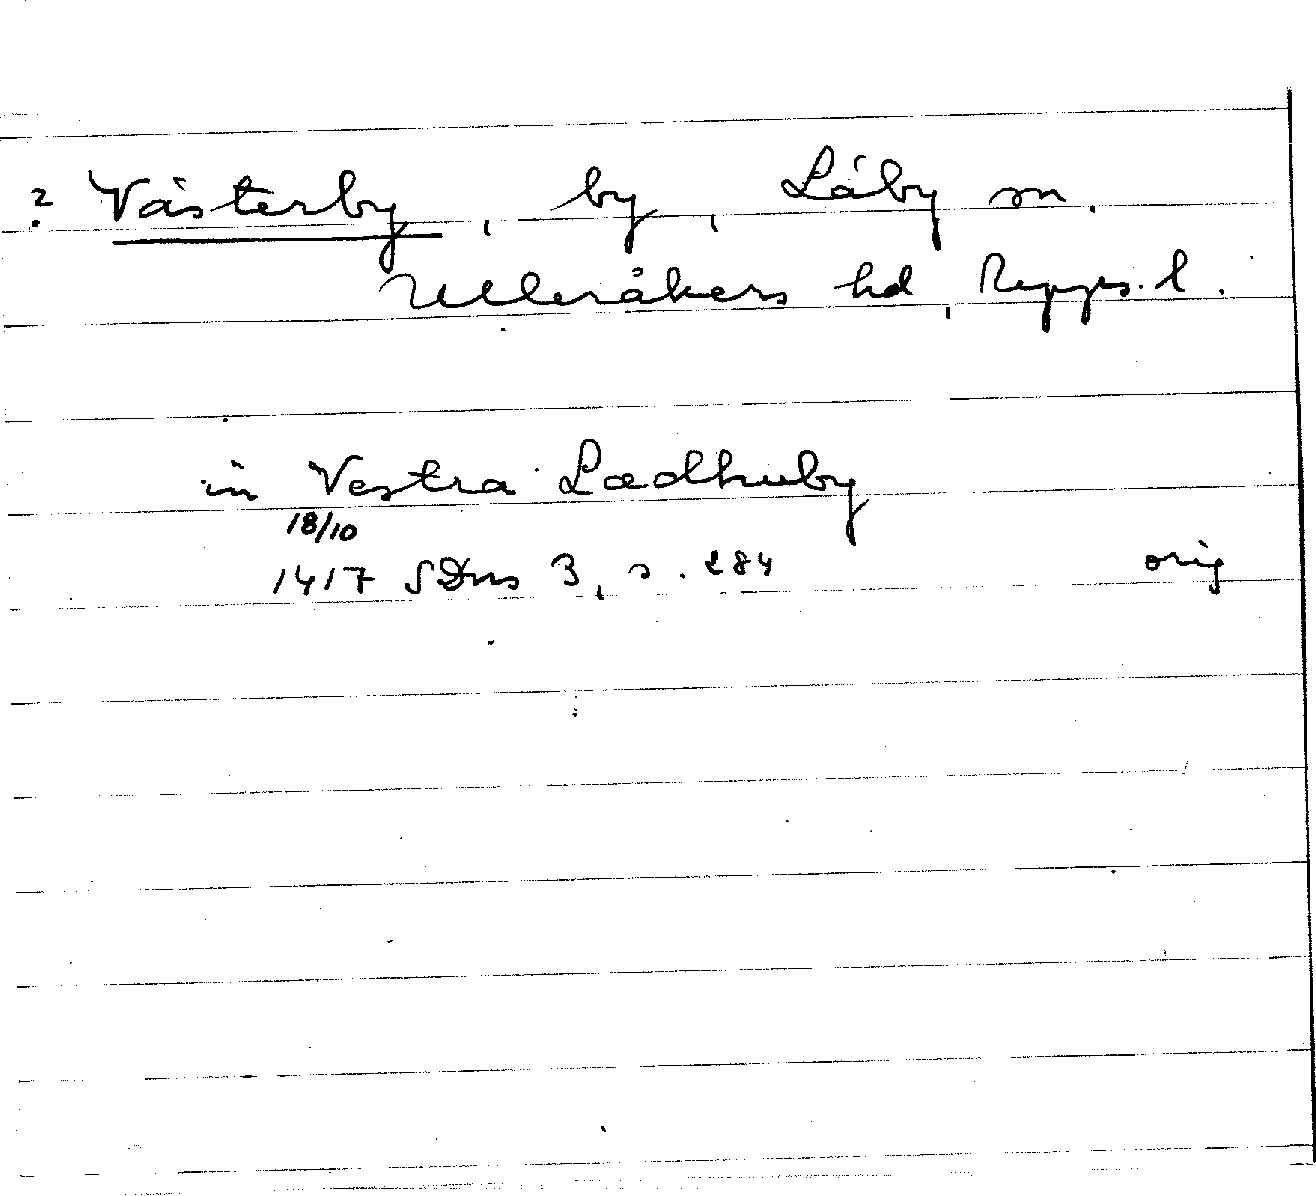 ? Västerby, by, Låby sn.
Ulleråkers hd, Uppls. l.
in Vestra Lædhuby
18/10
1417 SDns 3, s. 284 orig